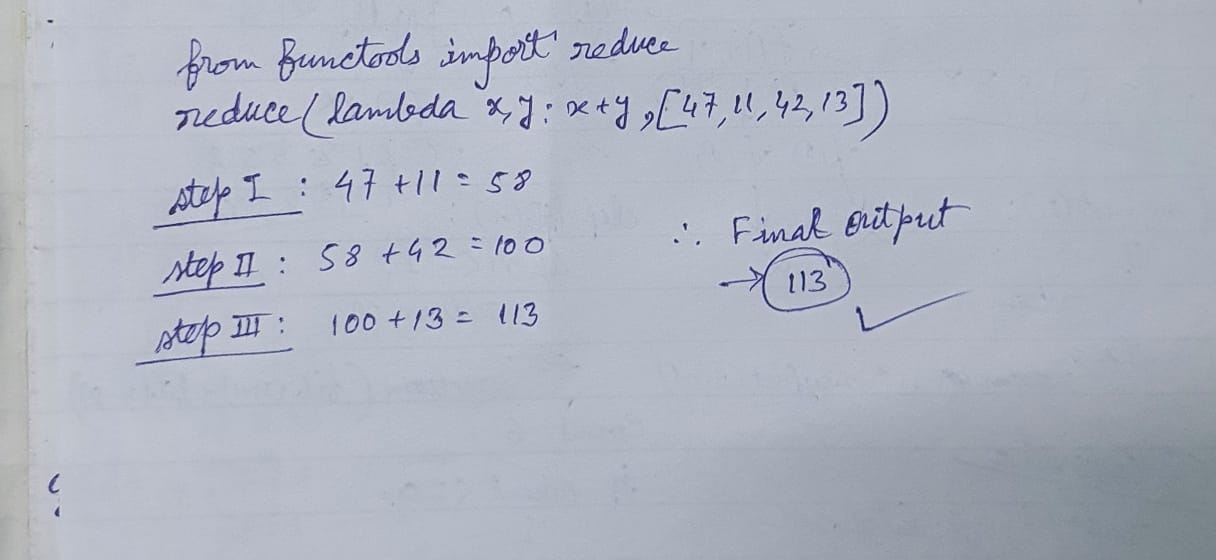 from functools import reduce
reduce(lambda x,y: x+y,[47,11,42,13])
step I : 47 +11 = 58
step II : 58 +42 = 100
step III : 100 +13 = 113
∴ Final output
→ 113